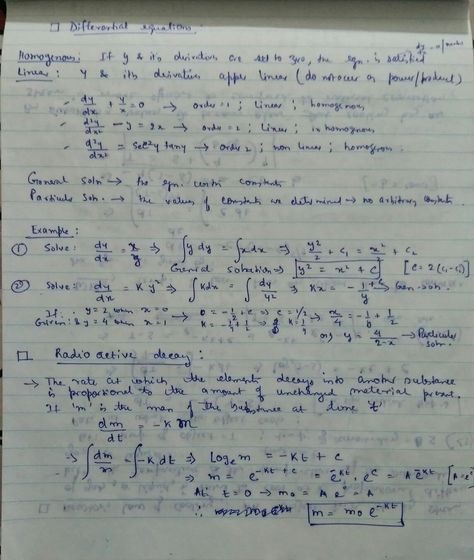 □ Differential equations.
Homogenous: If y & its derivatives are set to zero, the eqn. is satisfied
Linear: y & its derivatives appear linear (do not occur as power/product)
- dy/dx + y/x = 0 → order = 1 ; linear ; homogenous
- d²y/dx² - y = 2x → order = 2 ; linear ; inhomogenous
- d²y/dx² = sec²y tan y → order 2 ; non linear ; homogenous.
General soln → the eqn. contn constants
Particular soln. → the values of constants are determined → no arbitrary constants.
Example:
① Solve: dy/dx = x/y ⇒ ∫y dy = ∫x dx ⇒ y²/2 + c₁ = x²/2 + c₂
General solution ⇒ y² = x² + C [C = 2(c₂-c₁)]
② Solve: dy/dx = K y² ⇒ ∫K dx = ∫dy/y² ⇒ Kx = -1/y + C → Gen. soln.
If: y = 2 when x = 0 → 0 = -1/2 + c ⇒ c = 1/2 ⇒ x/4 = -1/y + 1/2
Given: & y = 4 when x = 1 → K = -1/4 + 1/2 ⇒ K = 1/4
or y = 4/2-x → Particular soln.
□ Radio active decay:
→ The rate at which the element decays into another substance
is proportional to the amount of unchanged material present.
If 'm' is the mass of the substance at time 't'
dm/dt = -K m
⇒ ∫dm/m = ∫-K dt ⇒ Logₑ m = -Kt + c
⇒ m = e^-Kt + c = e^-Kt . e^c = A e^-Kt [A = e^c]
At t = 0 → m₀ = A e⁰ = A
∴ m = m₀ e^-Kt